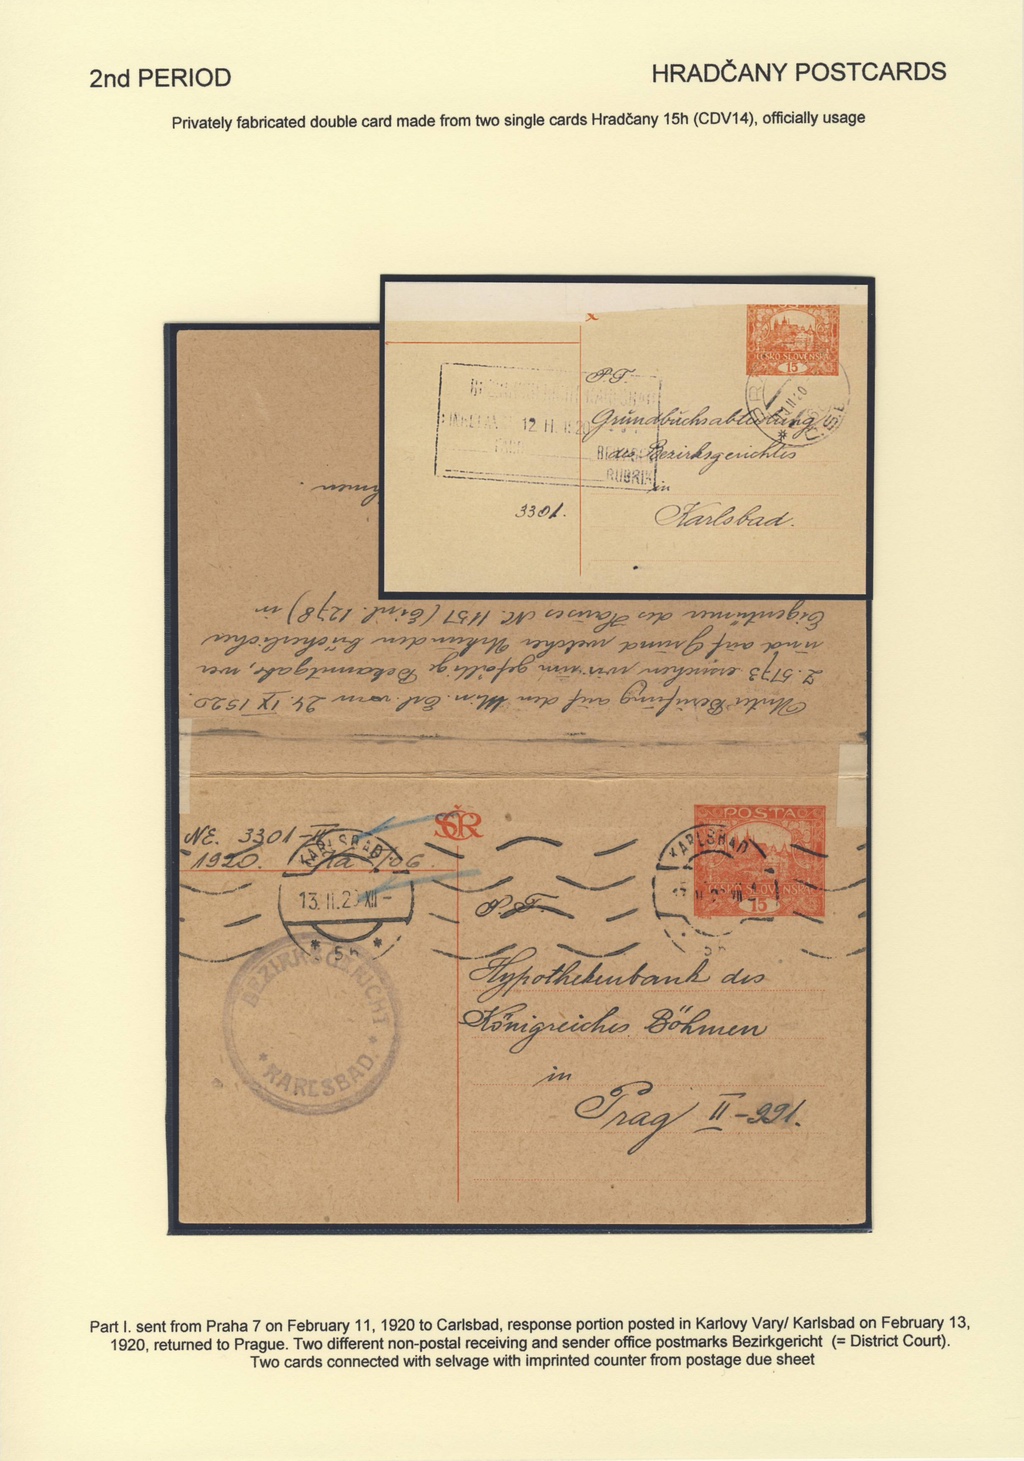 2nd PERIOD
HRADČANY POSTCARDS
Privately fabricated double card made from two single cards Hradčany 15h (CDV14), officially usage
ČESKO-SLOVENSKÁ
15
P.T.
Grundbuchsabteilung
des Bezirksgerichtes
in
Karlsbad.
12. II. 1920
RUBRIK
3301.
Eigentümer des Hauses N. 1157 (Einl. 1278) in
und auf Grund welcher Urkunden bücherlicher
Z. 5773 ersuchen wir um gefällige Bekanntgabe, wer
Unter Berufung auf den Min. Erl. vom 24. IX 1920
POSTA
ČSR
NE. 3301-II
1920.
KARLSBAD
13. II. 20 XII-
5b
KARLSBAD
ČESKO-SLOVENSKÁ
15
P.T.
Hypothekenbank des
Königreiches Böhmen
in
Prag II-991.
BEZIRKSGERICHT
* KARLSBAD. *
Part I. sent from Praha 7 on February 11, 1920 to Carlsbad, response portion posted in Karlovy Vary/ Karlsbad on February 13,
1920, returned to Prague. Two different non-postal receiving and sender office postmarks Bezirkgericht (= District Court).
Two cards connected with selvage with imprinted counter from postage due sheet